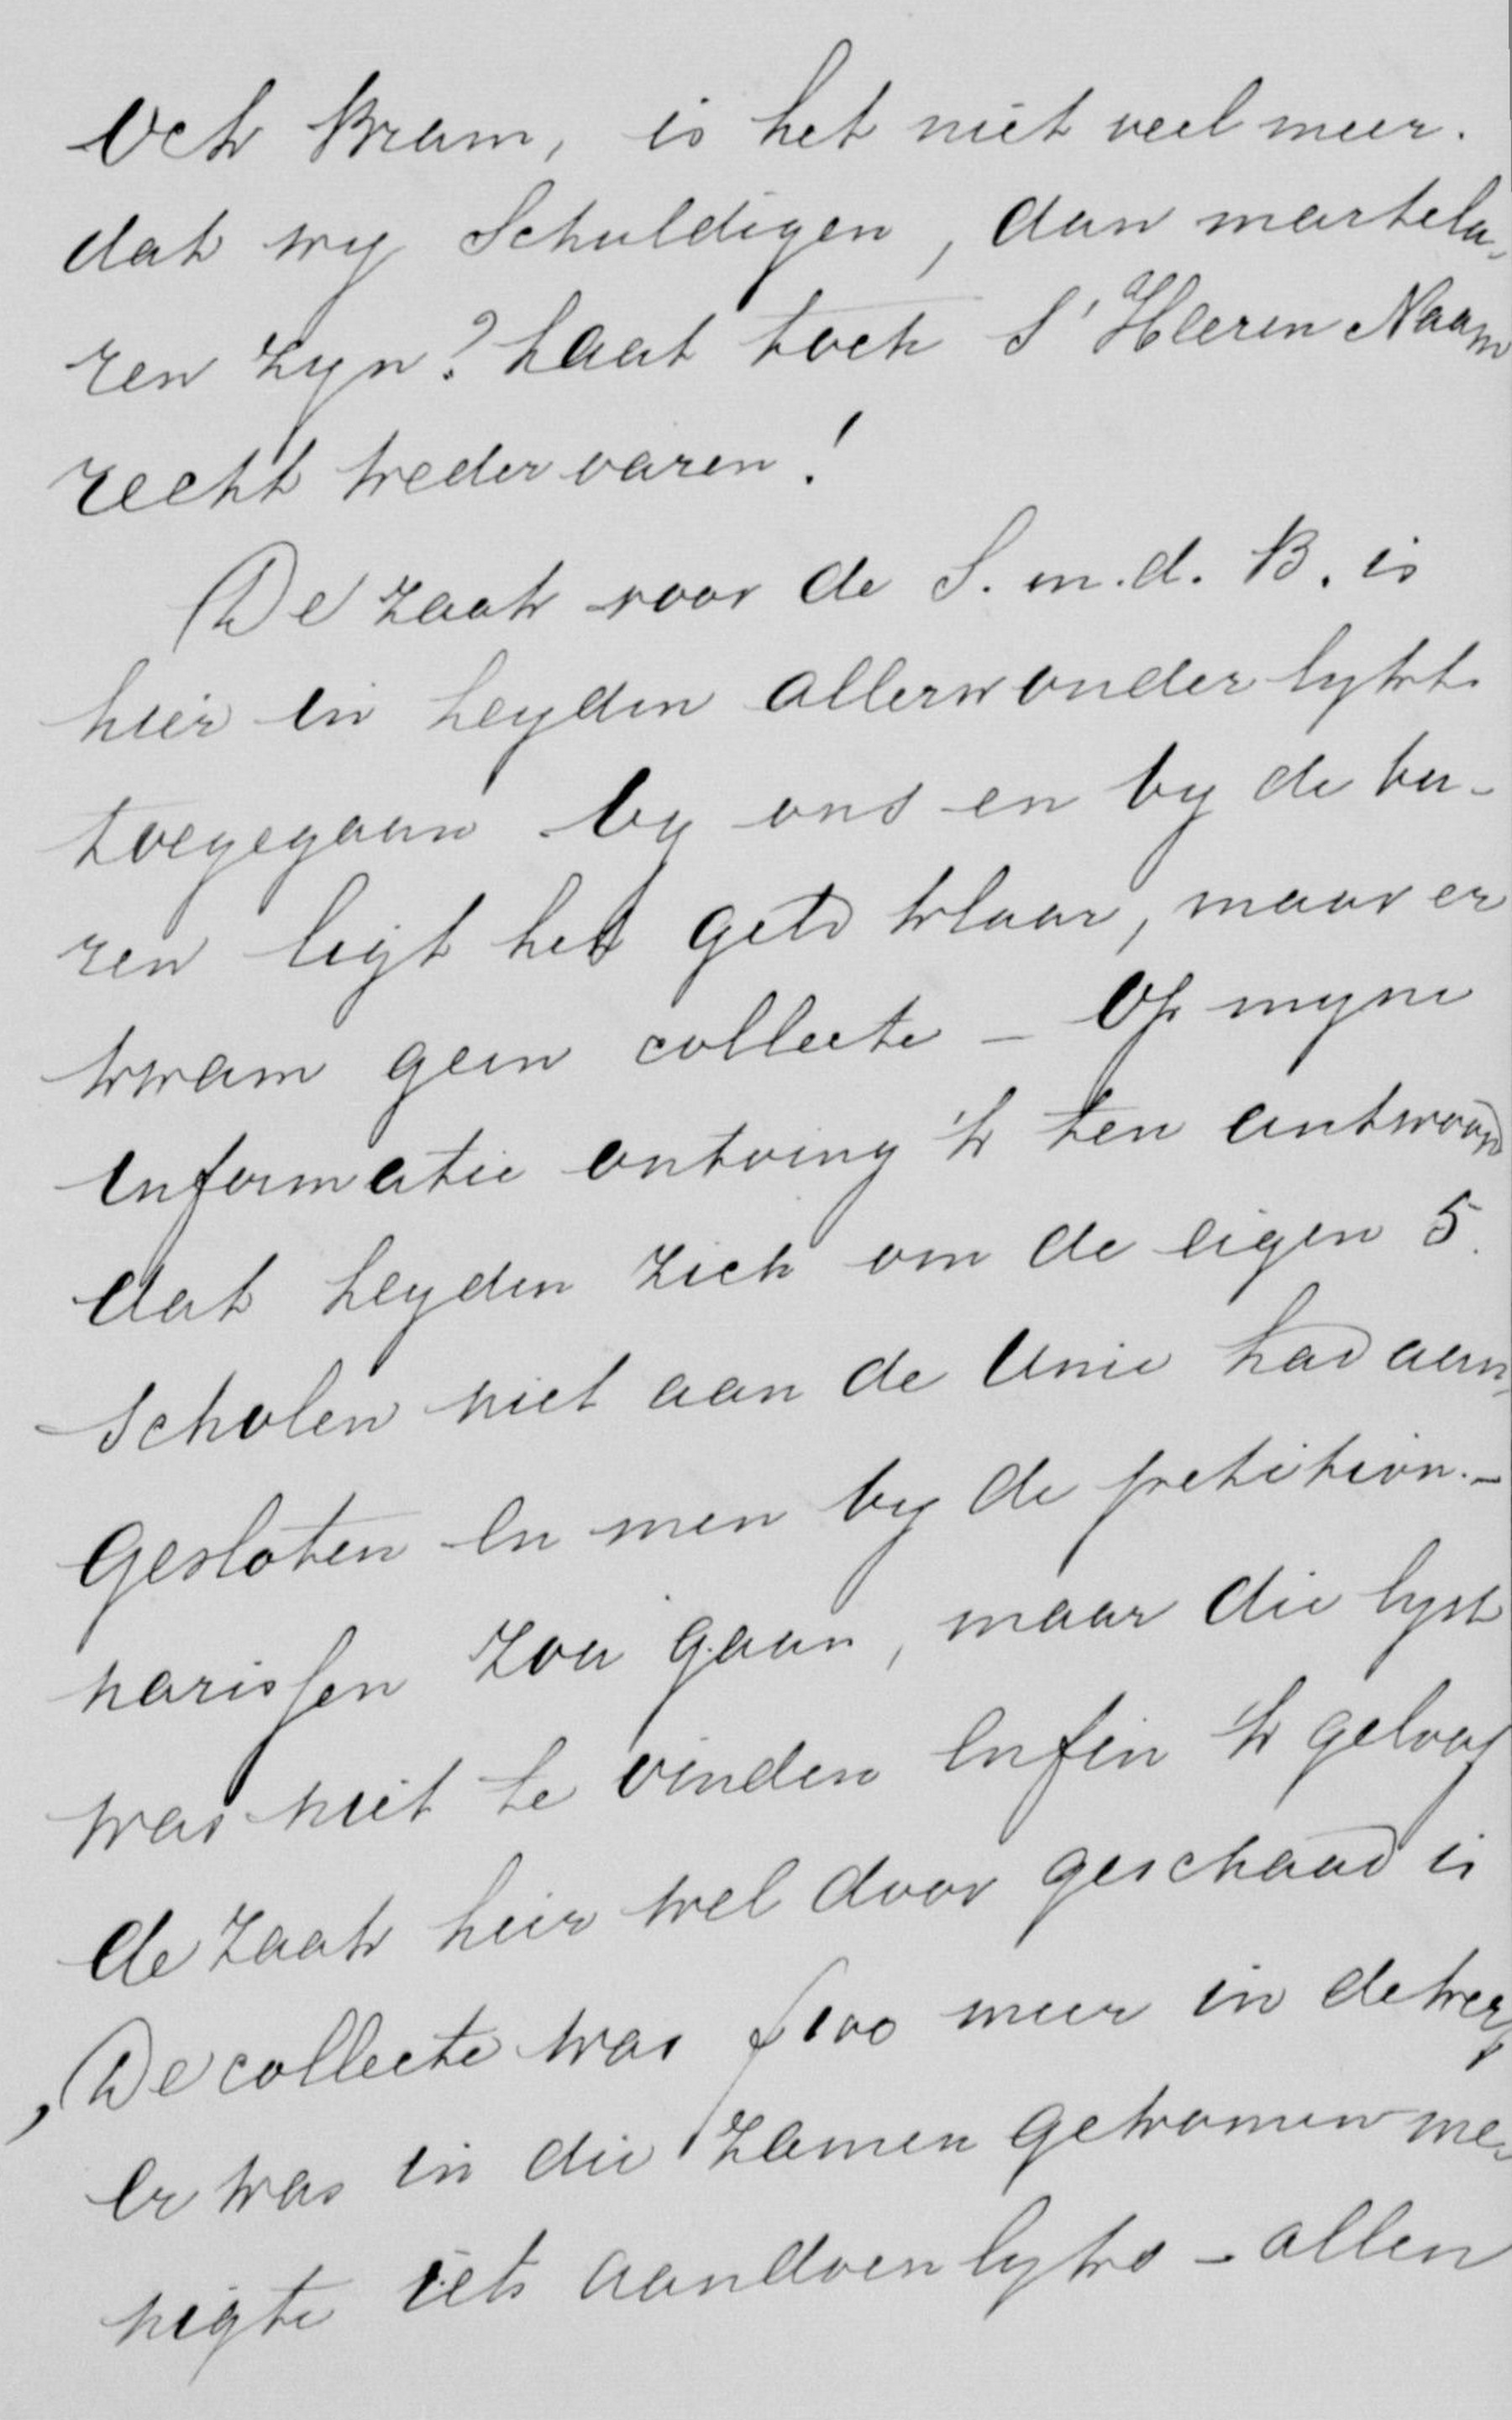 Och Bram, is het niet veel meer.
dat wy Schuldigen, dan martela-
ren zyn? Laat toch s' Heeren Naam
recht wedervaren!
De zaak voor de S. m. d. B. is
hier in Leyden allerwonderlykst
toegegaan by ons en by de bu-
ren ligt het geld klaar, maar er
kwam geen collecte - Op myne
informatie ontving 'k ten antwoord
dat Leyden zich om de eigen 5
scholen niet aan de Unie had aan-
gesloten en men by de petition.-
narissen zou gaan, maar die lyst
was niet te vinden enfin 'k geloof
de zaak hier wel door geschaad is
De collecte was ƒ100 meer in de kerk,
er was in die zamen gekomen me-
nigte iets aandoenlyks - allen